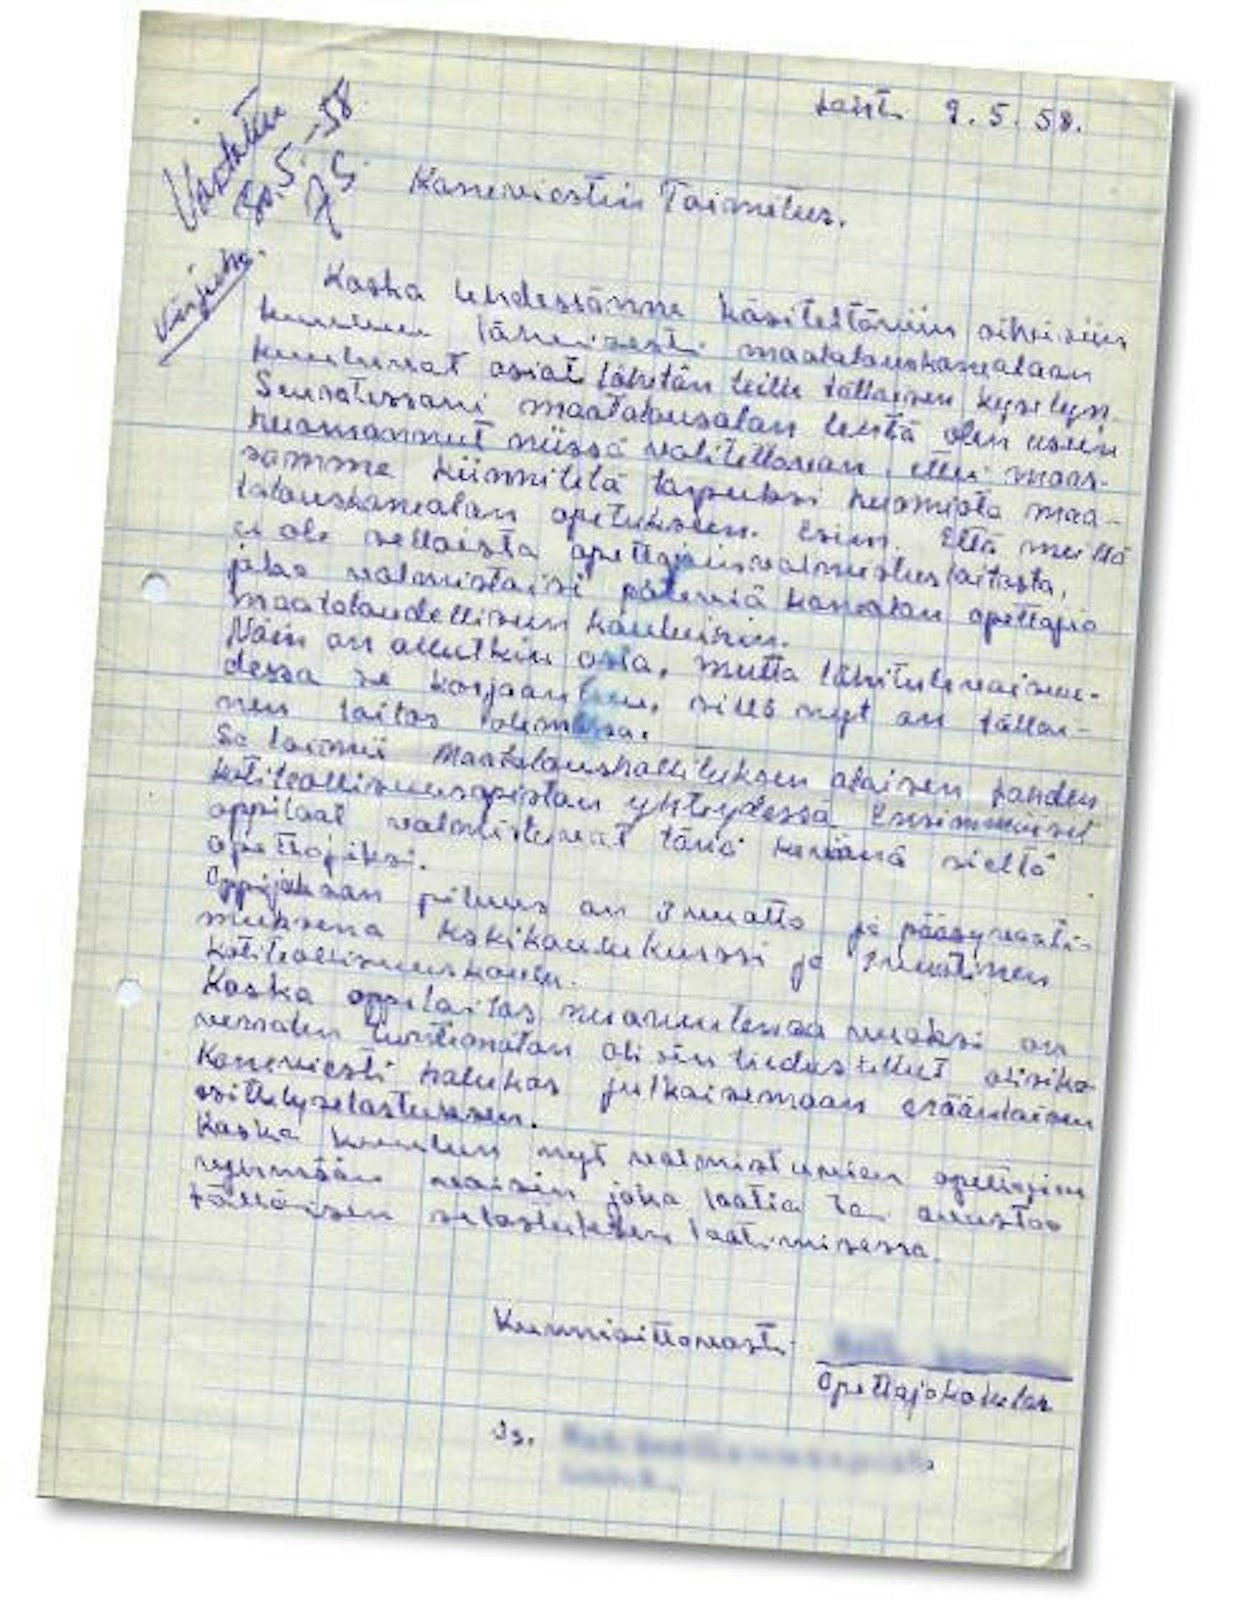 Laht. 9.5.58.
Vastattu
30.5.-58
Koneviestin Toimitus.
Koska lehdessänne käsiteltäviin aiheisiin
kuuluu läheisesti maatalouskonealaan
kuuluvat asiat lähetän teille tällaisen kyselyn.
Seuratessani maatalousalan lehtiä olen usein
huomannut niissä valitettavan, ettei maas-
samme kiinnitetä tarpeeksi huomiota maa-
talouskonealan opetukseen. Esim. Että meillä
ei ole sellaista opettajainvalmistuslaitosta,
joka valmistaisi päteviä konealan opettajia
maataloudellisiin kouluihin.
Näin on ollutkin asia, mutta lähitulevaisuu-
dessa se korjaantuu, sillä nyt on tällai-
nen laitos olemassa.
Se toimii Maataloushallituksen alaisen Lahden
kotiteollisuusopiston yhteydessä Ensimmäiset
oppilaat valmistuvat tänä keväänä sieltä
opettajiksi.
Oppijakson pituus on 3 vuotta ja pääsyvaati-
muksena keskikoulukurssi ja 2 vuotinen
kotiteollisuuskoulu.
Koska oppilaitos nuoruutensa vuoksi on
verraten tuntematon olisin tiedustellut olisiko
Koneviesti halukas julkaisemaan eräänlaisen
esittelyselostuksen.
Koska kuulun nyt valmistuvien opettajien
ryhmään voisin joko laatia tai avustaa
tällaisen selostuksen laatimisessa.
Kunnioittavasti
Opettajakokelas
Os.